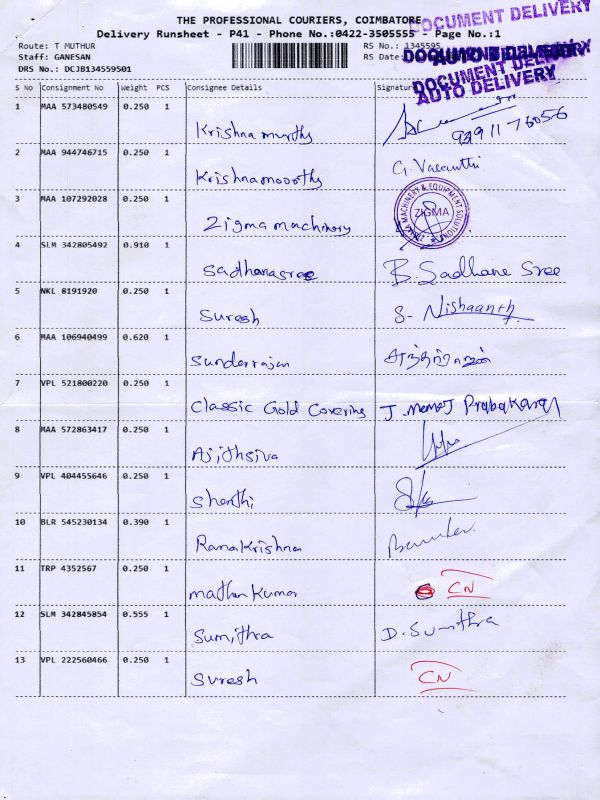 THE PROFESSIONAL COURIERS, COIMBATORE
DOCUMENT DELIVERY
Delivery Runsheet - P41 - Phone No.:0422-3505555 - Page No.:1
Route: T MUTHUR
RS No.: 1345595
Staff: GANESAN
RS Date:
DRS No.: DCJB134559501
DOCUMENT DELIVERY
AUTO DELIVERY
S No Consignment No Weight PCS Consignee Details Signature
1 MAA 573480549 0.250 1
Krishna murthy 9391176056
2 MAA 944746715 0.250 1
Krishnamoorthy G. Vasanthi
3 MAA 107292028 0.250 1
Zigma machinery ZIGMA MACHINERY & EQUIPMENT SOLUTIONS ZIGMA
4 SLM 342805492 0.910 1
Sadhanasree B. Sadhane Sree
5 NKL 8191920 0.250 1
Suresh S. Nishaanth
6 MAA 106940499 0.620 1
Sunderrajan
7 VPL 521800220 0.250 1
Classic Gold Covering J. Prabakaran
8 MAA 572863417 0.250 1
Ajithsiva
9 VPL 404455646 0.250 1
Shanthi
10 BLR 545230134 0.390 1
RamaKrishna
11 TRP 4352567 0.250 1
mathan kumar CN
12 SLM 342845854 0.555 1
Sumithra D. Sumithra
13 VPL 222560466 0.250 1
Suresh CN